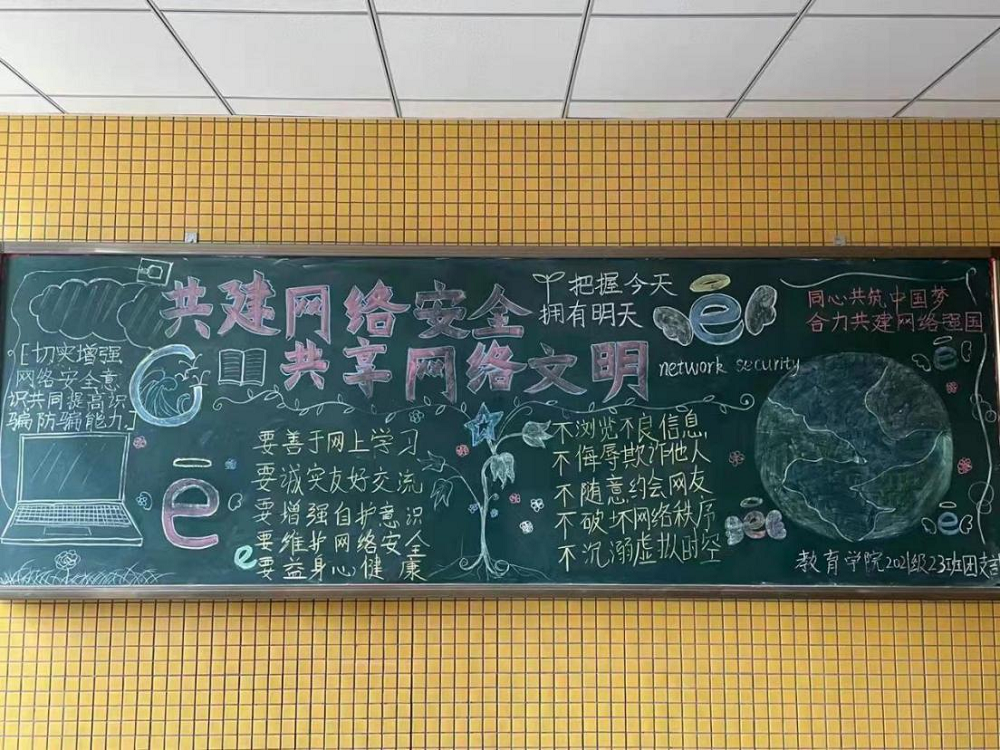 共建网络安全
共享网络文明
把握今天
拥有明天
e
network security
同心共筑中国梦
合力共建网络强国
[切实增强
网络安全意
识共同提高识
骗防骗能力]
e
要善于网上学习
要诚实友好交流
要增强自护意识
要维护网络安全
e要益身心健康
不浏览不良信息
不侮辱欺诈他人
不随意约会网友
不破坏网络秩序
不沉溺虚拟时空
e
e
e
教育学院2021级23班团支